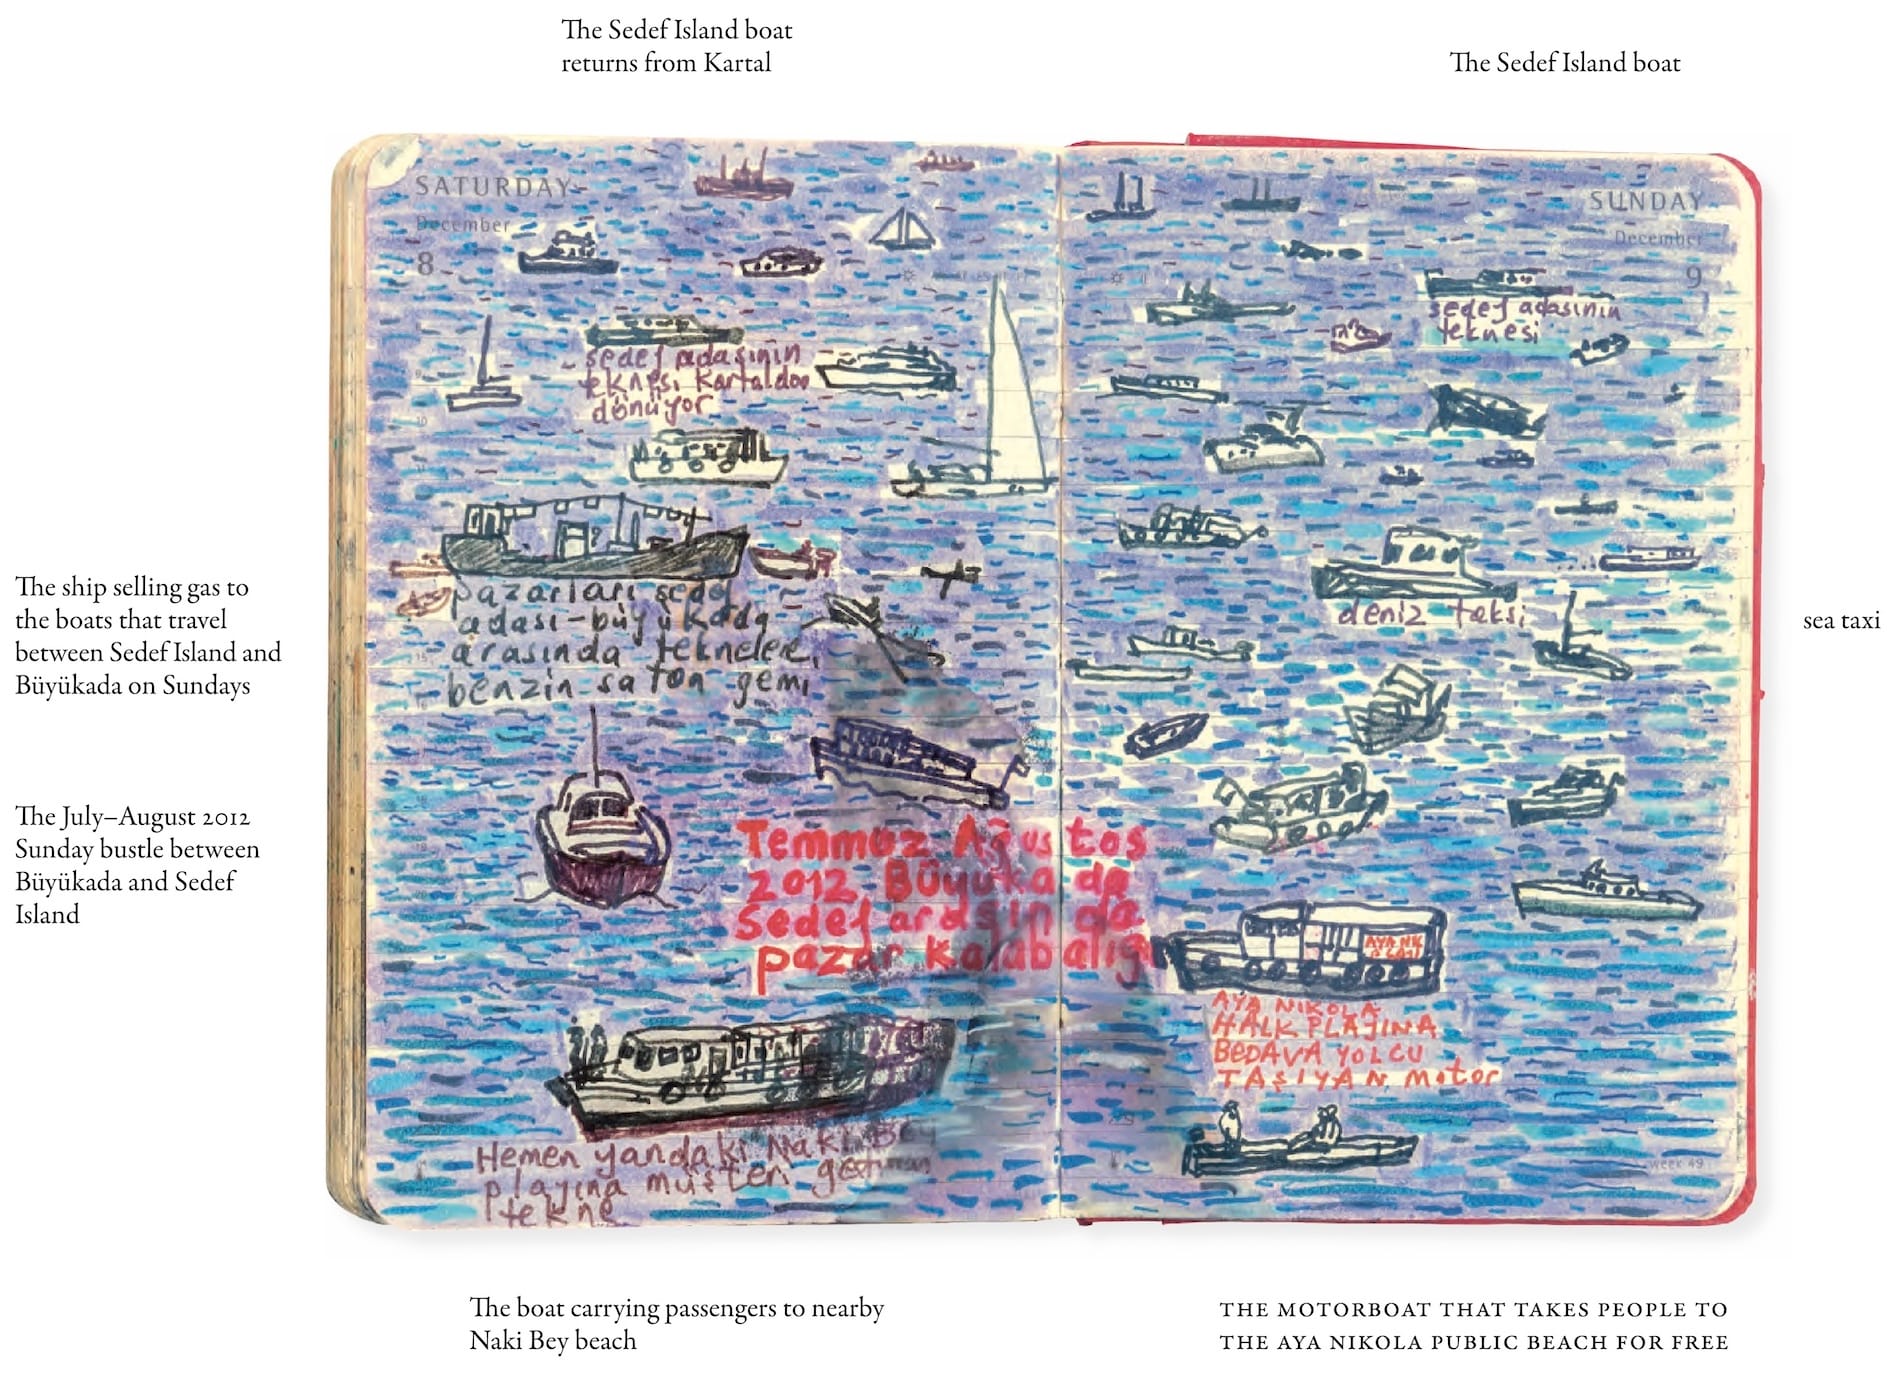 The Sedef Island boat
returns from Kartal
The Sedef Island boat
SATURDAY
December
8
SUNDAY
December
9
sedef adasının
teknesi Kartaldan
dönüyor
sedef adasının
teknesi
The ship selling gas to
the boats that travel
between Sedef Island and
Büyükada on Sundays
pazarları sedef
adası-büyükada
arasında teknelere
benzin satan gemi
deniz taksi
sea taxi
The July–August 2012
Sunday bustle between
Büyükada and Sedef
Island
Temmuz Ağustos
2012 Büyükada
Sedef arasında
pazar kalabalığı
AYA NİKOLA
HALK PLAJINA
BEDAVA YOLCU
TAŞIYAN motor
Hemen yandaki Naki Bey
plajına müşteri getiren
tekne
week 49
The boat carrying passengers to nearby
Naki Bey beach
THE MOTORBOAT THAT TAKES PEOPLE TO
THE AYA NIKOLA PUBLIC BEACH FOR FREE